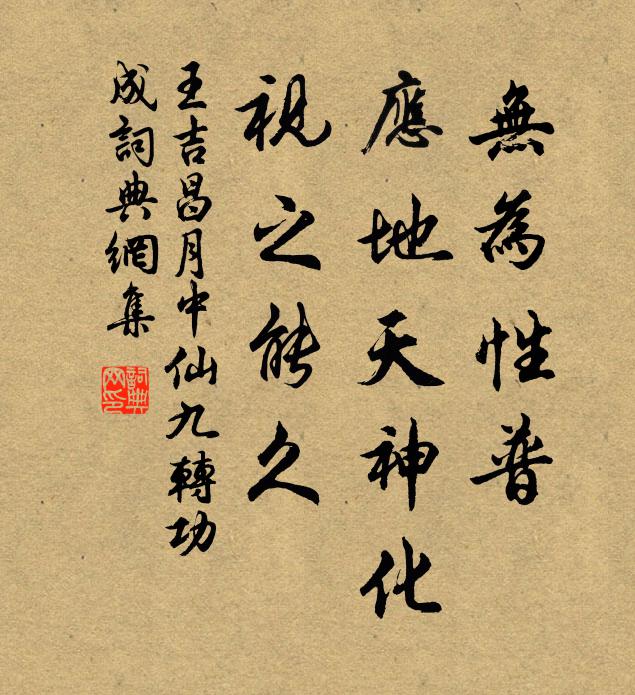 無為性普
應地天神化
視之能久
王吉昌月中仙九轉功
成詞典網集
詞典
网印